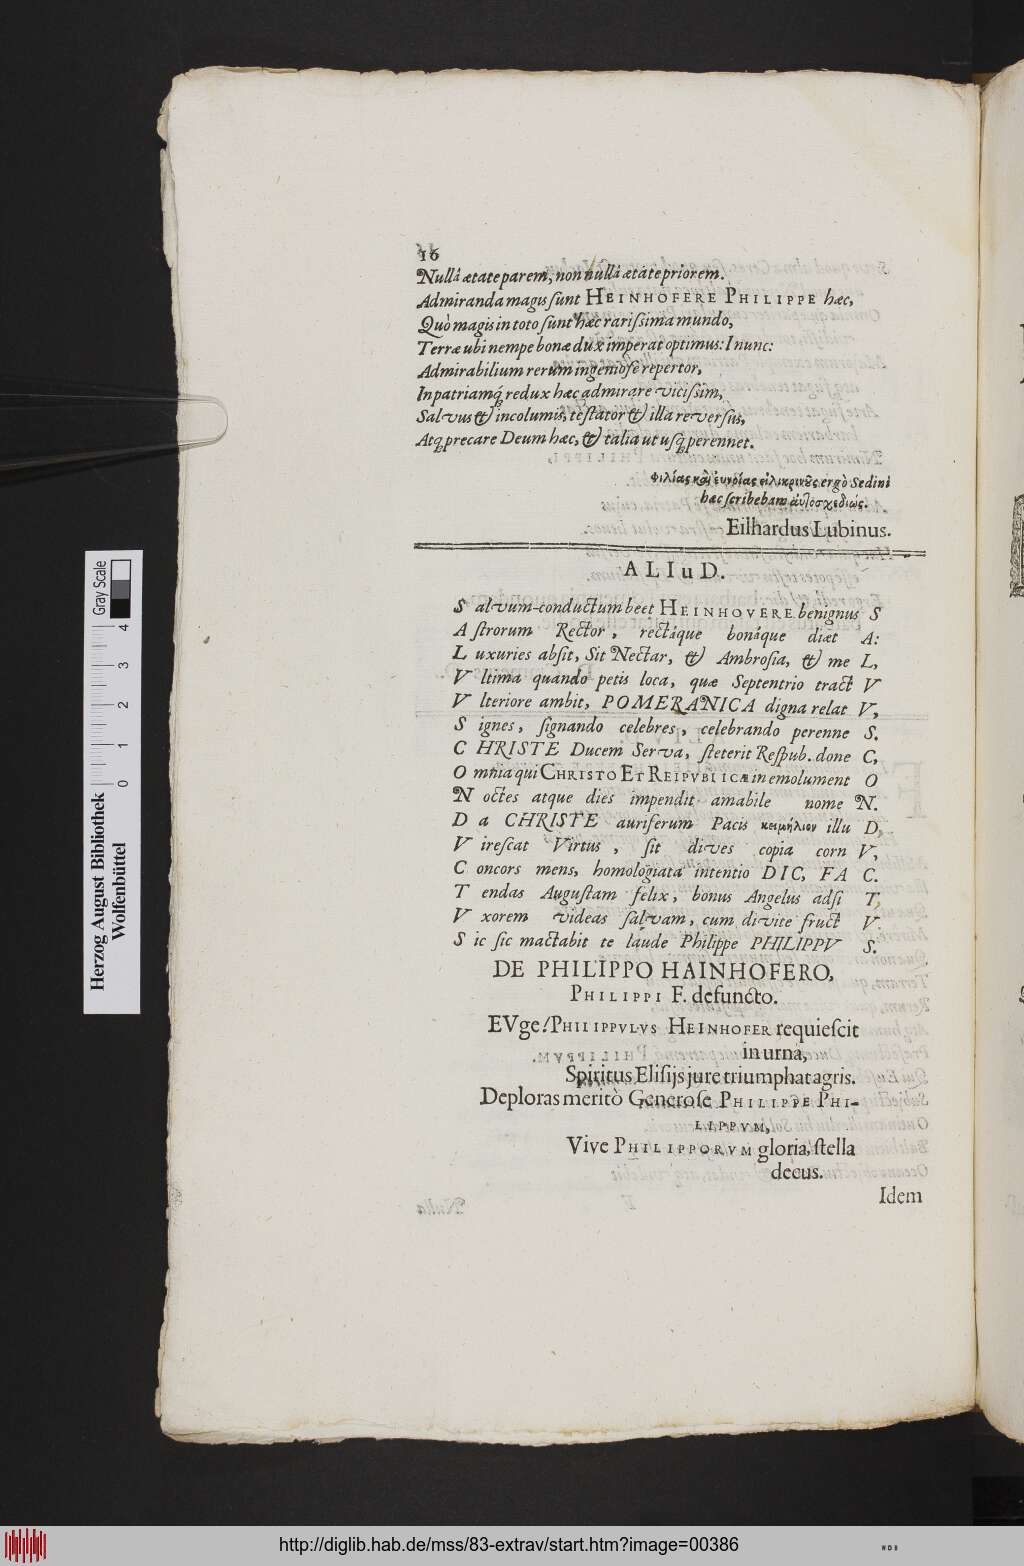 16
Nullâ ætate parem, non nullâ ætate priorem.
Admiranda magis sunt HEINHOFERE PHILIPPE hæc,
Quò magis in toto sunt hæc rarissima mundo,
Terræ ubi nempe bonæ dux imperat optimus: I nunc:
Admirabilium rerum ingeniose repertor,
In patriamq́; redux hæc admirare vicissim,
Salvus & incolumis, testator & illa reversus,
Atq; precare Deum hæc, & talia ut usq; perennet.
φιλίας καὶ ἐυνοίας εἰλικρινοῦς ergò Sedini
hæc scribebam ἀυτοσχεδιώς.
Eilhardus Lubinus.
ALIuD.
S alvum-conductum beet HEINHOVERE benignus S
A strorum Rector, rectáque bonáque diæt A:
L uxuries absit, Sit Nectar, & Ambrosia, & me L,
V ltima quando petis loca, quæ Septentrio tract V
V lteriore ambit, POMERANICA digna relat V,
S ignes, signando celebres, celebrando perenne S.
C HRISTE Ducem Serva, steterit Respub. done C,
O mnia qui CHRISTO ET REIPVBLICÆ in emolument O
N octes atque dies impendit amabile nome N.
D a CHRISTE auriferum Pacis κειμήλιον illu D,
V irescat Virtus, sit dives copia corn V,
C oncors mens, homologiata intentio DIC, FA C.
T endas Augustam felix, bonus Angelus adsi T,
V xorem videas salvam, cum divite fruct V.
S ic sic mactabit te laude Philippe PHILIPPV S.
DE PHILIPPO HAINHOFERO,
PHILIPPI F. defuncto.
EVge! PHILIPPVLVS HEINHOFER requiescit
in urna,
Spiritus Elisijs jure triumphat agris.
Deploras meritò Generose PHILIPPE PHI-
LIPPVM,
Vive PHILIPPORVM gloria, stella
decus.
Idem
Herzog August Bibliothek
Wolfenbüttel
0 1 2 3 4
Gray Scale
http://diglib.hab.de/mss/83-extrav/start.htm?image=00386